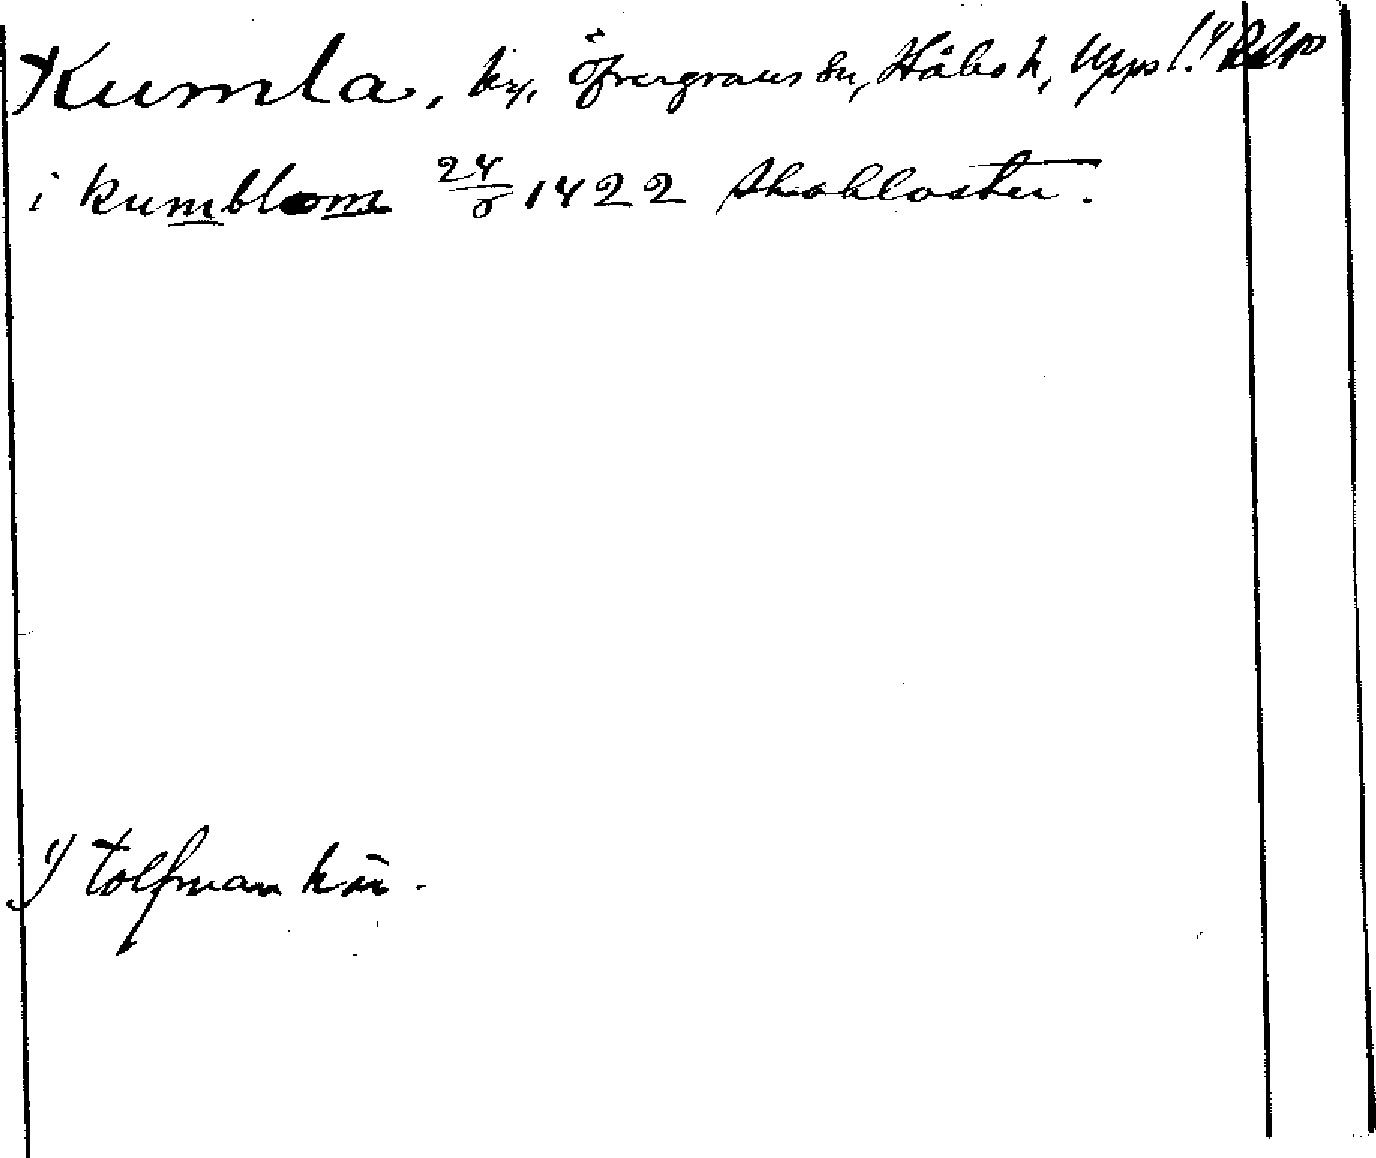 Kumla, by, Öfvergrans sn, Håbo h, Uppl.¹⁾ RAP
i kumblom 24/8 1422 Skokloster.
¹⁾ tolfman här.